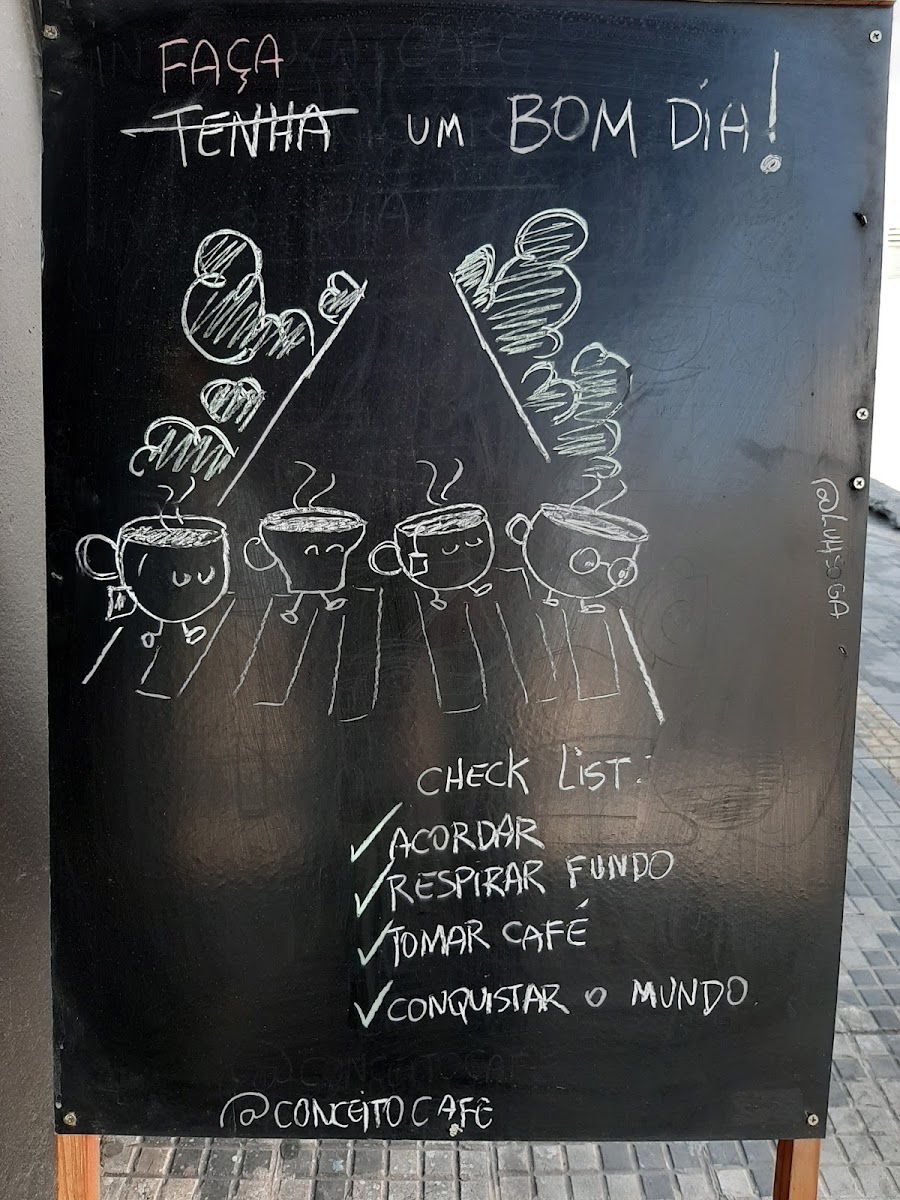 FAÇA
TENHA UM BOM DIA!
@LUHSOGA
CHECK LIST:
ACORDAR
RESPIRAR FUNDO
TOMAR CAFÉ
CONQUISTAR O MUNDO.
@CONCEITOCAFE